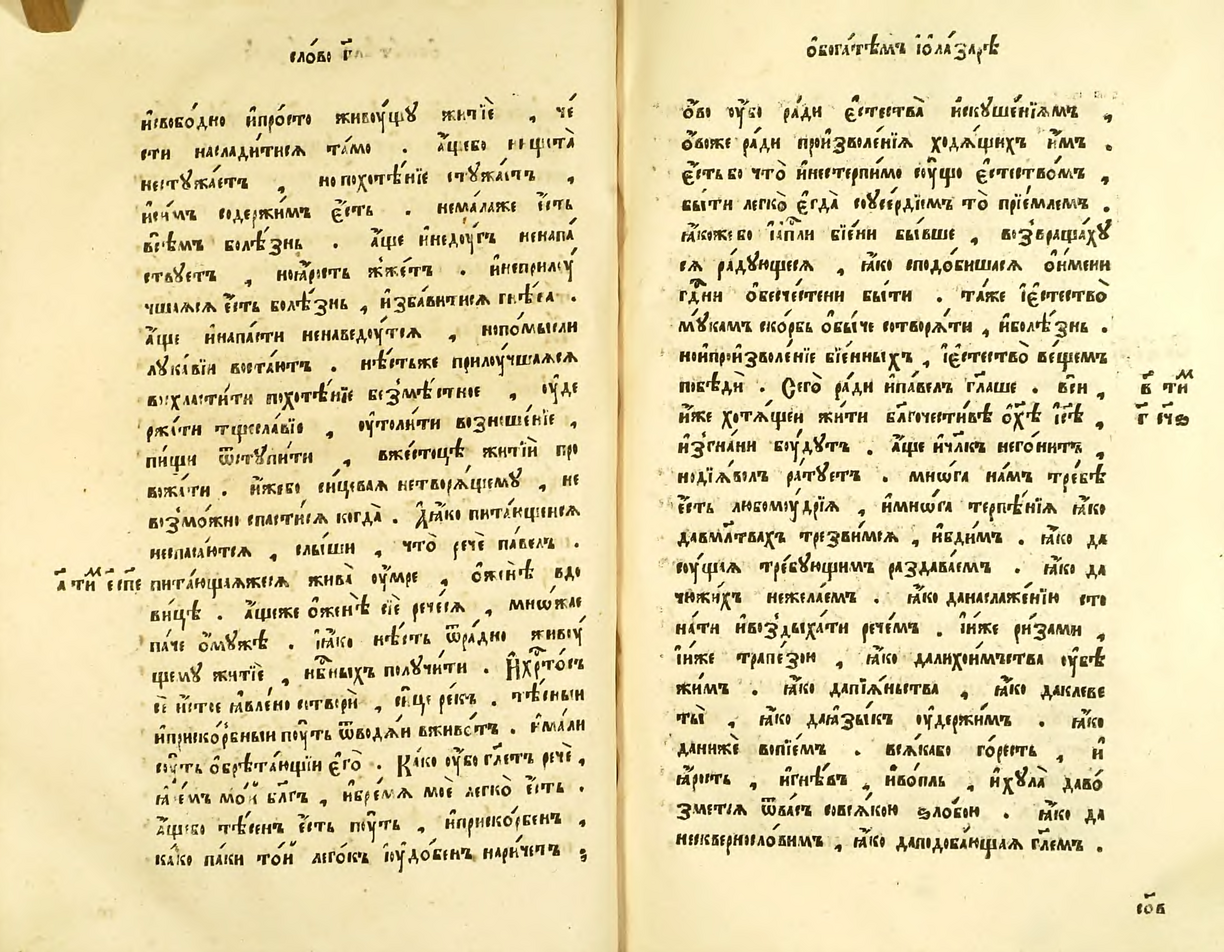 сло́во г҃
и҆свобо́дно и҆про́сто живоу́щꙋ житїѐ , че́
сти наслади́тисѧ та́мо . а҆́щебо нищета̀
нестꙋжа́етъ , но похотѣ́нїе стꙋжа́етъ ,
и҆си́мъ содержи́мъ є҆́сть . нема́лаже є҆́сть
всѣ́мъ болѣ́знь . а҆́ще и҆недоу́гъ ненапа́
ствꙋетъ , ноꙗ҆́рость жже́тъ . и҆неприлоу́
чшаѧсѧ є҆́сть болѣ́знь , и҆зба́витисѧ гнѣ́ва .
а҆́ще и҆напа́сти ненаведоу́тсѧ , нопо́мысли
лꙋка́вїи востаю́тъ . нѣ́стьже прилоу́чшаѧсѧ
в̾схласти́ти похотѣ́нїе безмѣ́стное , оу҆де
ржа́ти тщесла́вїю , оу҆толи́ти возноше́нїе ,
пи́щи ѿстꙋпи́ти , вже́стоцѣ житїѝ про
вожа́ти . и҆́жебо си́цеваѧ нетворѧ́щемꙋ , не
возмо́жно спасти́сѧ когда̀ . А҆ꙗ҆́ко пита́ющїисѧ
неспаса́ютсѧ , слы́ши , что̀ речѐ па́велъ .
а҃ ти м є҃ спе пита́ющаѧжесѧ жива̀ оу҆́мре , ѻ҆женѣ̀ вдо
ви́цѣ . а҆́щеже ѻ҆женѣ̀ сїѐ рече́сѧ , мно́жае
па́че ѻ҆мꙋ́жѣ . ꙗ҆́ко нѣ́сть ѿра́дно живоу́
щемꙋ житїѐ , нб҃ныхъ получи́ти . И҆хрⷭ҇то́съ
сѐ и҆́стое ꙗ҆вле́но сотворѝ , си́це ре́къ . тѣ́сныи
и҆приско́рбныи поу́ть ѿводѧ́и вживо́тъ . и҆ма́ли
соу́ть ѻ҆брѣта́ющїи є҆го̀ . Ка́ко оу҆́бо гл҃етъ речѐ ,
ꙗ҆ре́мъ мо́й бл҃гъ , и҆бре́мѧ моѐ легко̀ є҆́сть .
а҆́щебо тѣ́сенъ є҆́сть поу́ть , и҆приско́рбенъ ,
ка́ко па́ки то́й лего́къ і҆оу҆до́бенъ нарече́тъ ;
ѻ҆бога́тѣмъ і҆ѻла́зарѣ
ѻ҆́во оу҆́бо ра́ди є҆стества̀ и҆скꙋше́нїѧмъ ,
ѻ҆́воже ра́ди произволе́нїѧ ходѧ́щихъ и҆́мъ .
є҆́сть бо что̀ и҆нестерпи́мо соу́що є҆стество́мъ ,
бы́ти легко̀ є҆гда̀ соусе́рдїемъ то̀ прїе́млемъ .
ꙗ҆́коже бо і҆а҆пⷭ҇ли бїе́ни бы́вше , возвраща́хꙋ
сѧ ра́дꙋющесѧ , ꙗ҆́ко сподо́бишасѧ ѻ҆и҆́мени
гдⷭ҇ни ѻ҆бесче́стени бы́ти . та́же і҆є҆стество̀
мꙋ́камъ ско́рбь ѻ҆бы́че сотворѧ́ти , и҆болѣ́знь .
нои҆произволе́нїе бїе́нныхъ , і҆є҆стество̀ ве́щемъ
побѣдѝ . Сего̀ ра́ди и҆па́велъ гл҃аше . всѝ , в҃ ти м
и҆́же хотѧ́щеи жи́ти бл҃гочести́вѣ ѻ҆хѣ҃ і҆сѣ҃ , г҃ сче
и҆згна́ни боу́дꙋтъ . а҆́ще и҆чл҃къ него́нитъ ,
нодїѧ́волъ ра́тꙋетъ . мнѡ́га на́мъ тре́бѣ
є҆́сть любомоу́дрїѧ , и҆мнѡ́га терпѣ́нїѧ ꙗ҆́ко
давмл҃твахъ трезви́мсѧ , и҆бди́мъ . ꙗ҆́ко да
соу́щаѧ тре́бꙋющимъ раздава́емъ . ꙗ҆́ко да
чю́жихъ нежела́емъ . ꙗ҆́ко данаслаже́нїи сто
на́ти и҆воздыха́ти рече́мъ . і҆и҆́же ри́зами ,
і҆и҆́же трапе́зои , ꙗ҆́ко далихои́мъства оу҆бѣ
жи́мъ . ꙗ҆́ко дапїѧ́ньства , ꙗ҆́ко даклеве
ты̀ , ꙗ҆́ко даꙗ҆зы́къ оу҆держи́мъ . ꙗ҆́ко
данижѐ вопїе́мъ . всѧ́кабо го́ресть , и҆
ꙗ҆́рость , и҆гнѣ́въ , и҆во́пль , и҆хꙋла̀ даво́
зметсѧ ѿва́съ совсѧ́кою ѕло́бою . ꙗ҆́ко да
несквернословимъ , ꙗ҆́ко даподоба́ющаѧ гл҃емъ .
соⷡ҇